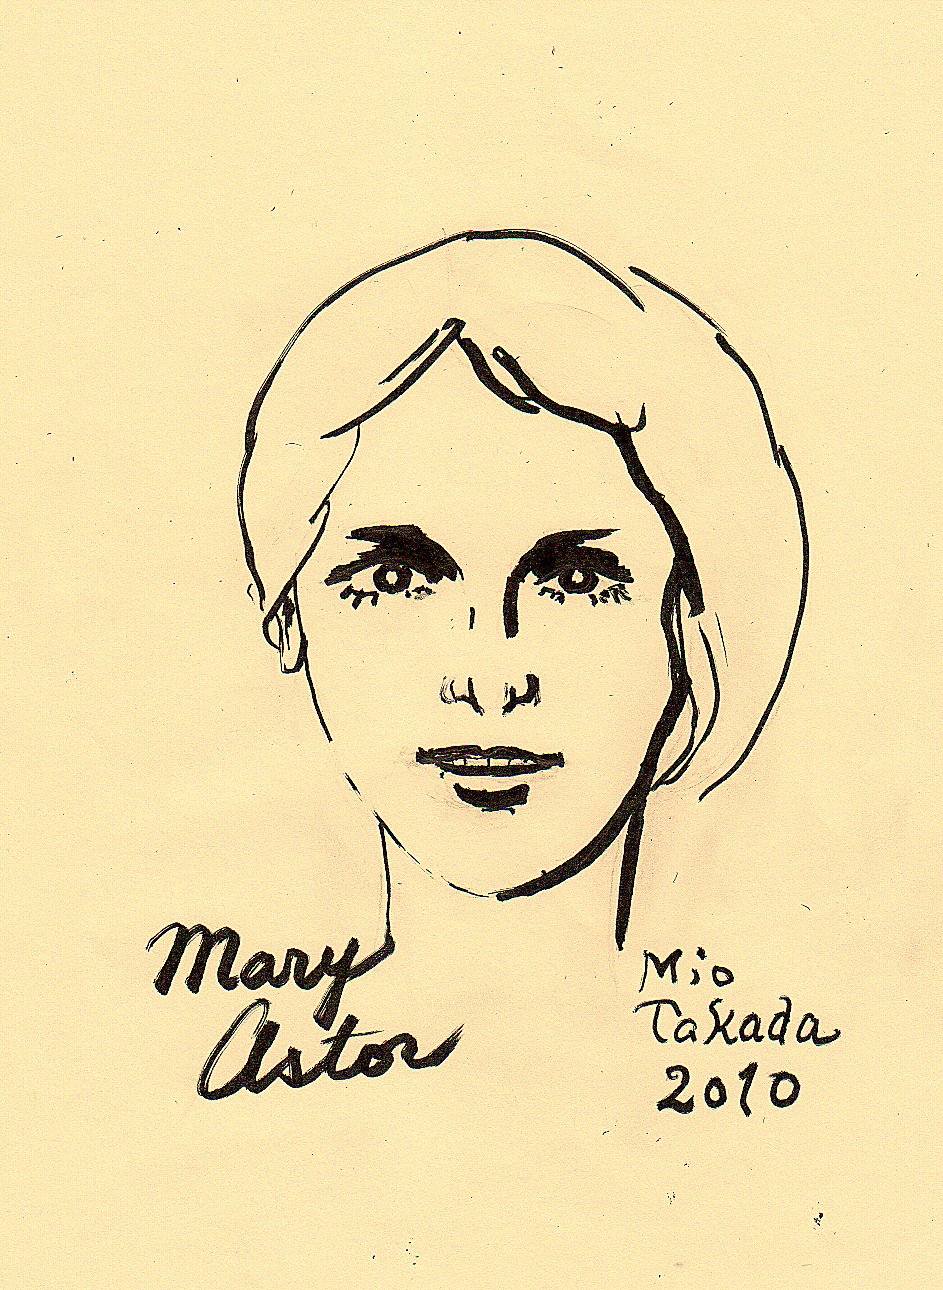 Mary
Astor
Mio
Takada
2010